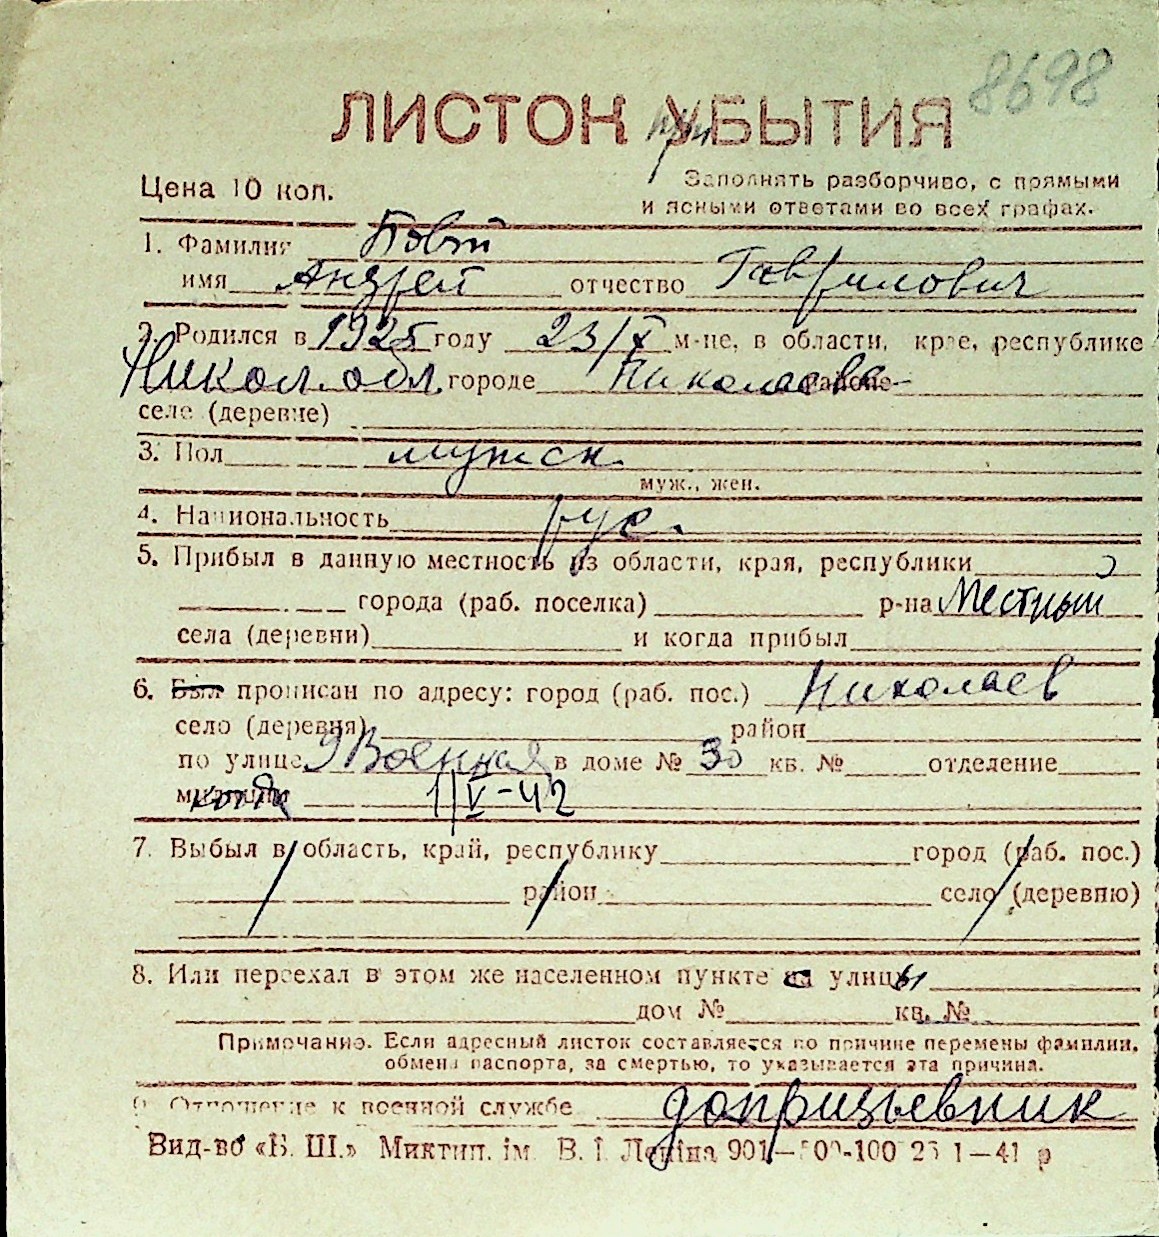 8698
ЛИСТОК при УБЫТИЯ
Цена 10 коп.
Заполнять разборчиво, с прямыми
и ясными ответами во всех графах.
1. Фамилия Повт
имя Андрей отчество Гаврилович
2. Родился в 1925 году 23/X м-це, в области, крае, республике
Никол. обл. городе Николаеве районе
селе (деревне)
3. Пол мужск.
муж., жен.
4. Национальность рус.
5. Прибыл в данную местность из области, края, республики
города (раб. поселка) р-на Местный
села (деревни) и когда прибыл
6. Был прописан по адресу: город (раб. пос.) Николаев
село (деревня) район
по улице 9 Военная в доме № 30 кв. № отделение
милиции когда 1/V-42
7. Выбыл в область, край, республику город (раб. пос.)
район село (деревню)
8. Или переехал в этом же населенном пункте на улицы
дом № кв. №
Примечание. Если адресный листок составляется по причине перемены фамилии,
обмена паспорта, за смертью, то указывается эта причина.
9. Отношение к военной службе допризывник
Вид-во «Б. Ш.» Миктип. ім. В. І. Леніна 901— -100 1—41 р